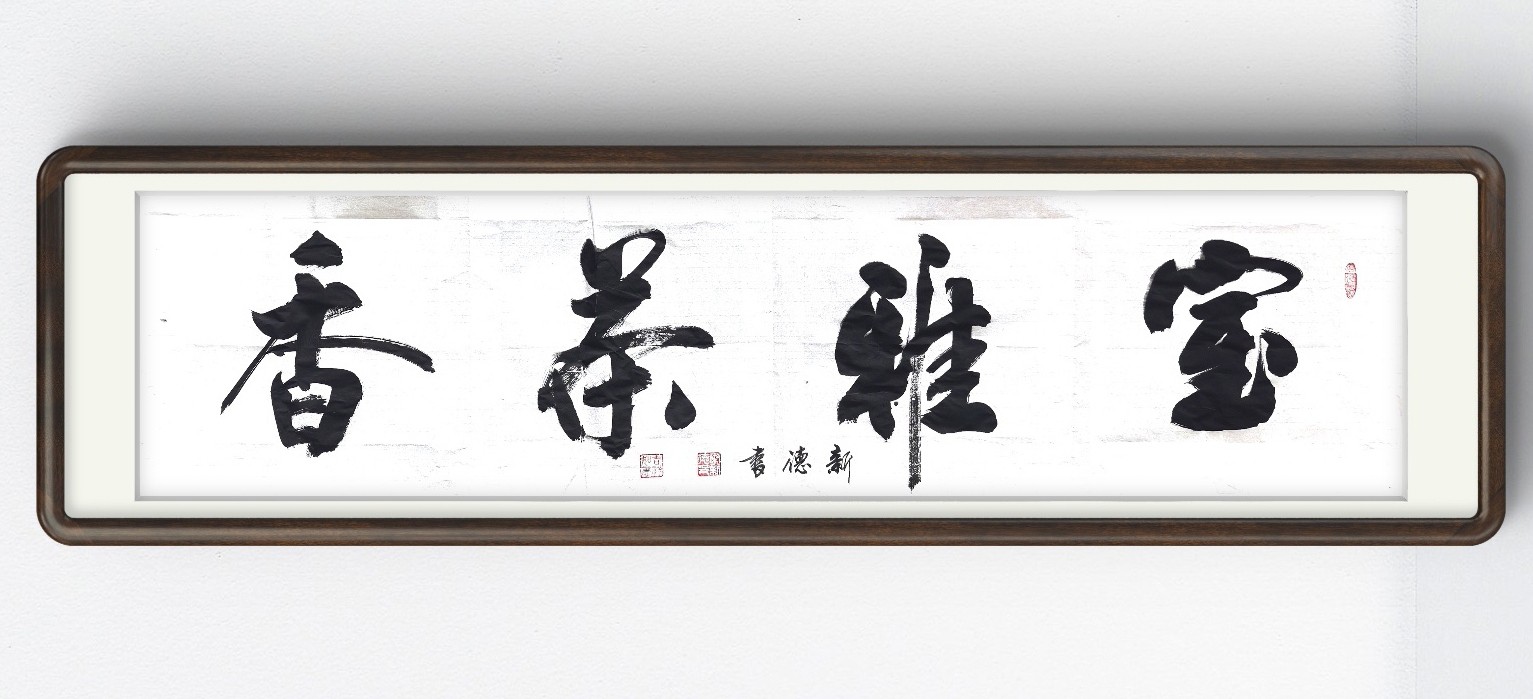 室雅茶香
新德书